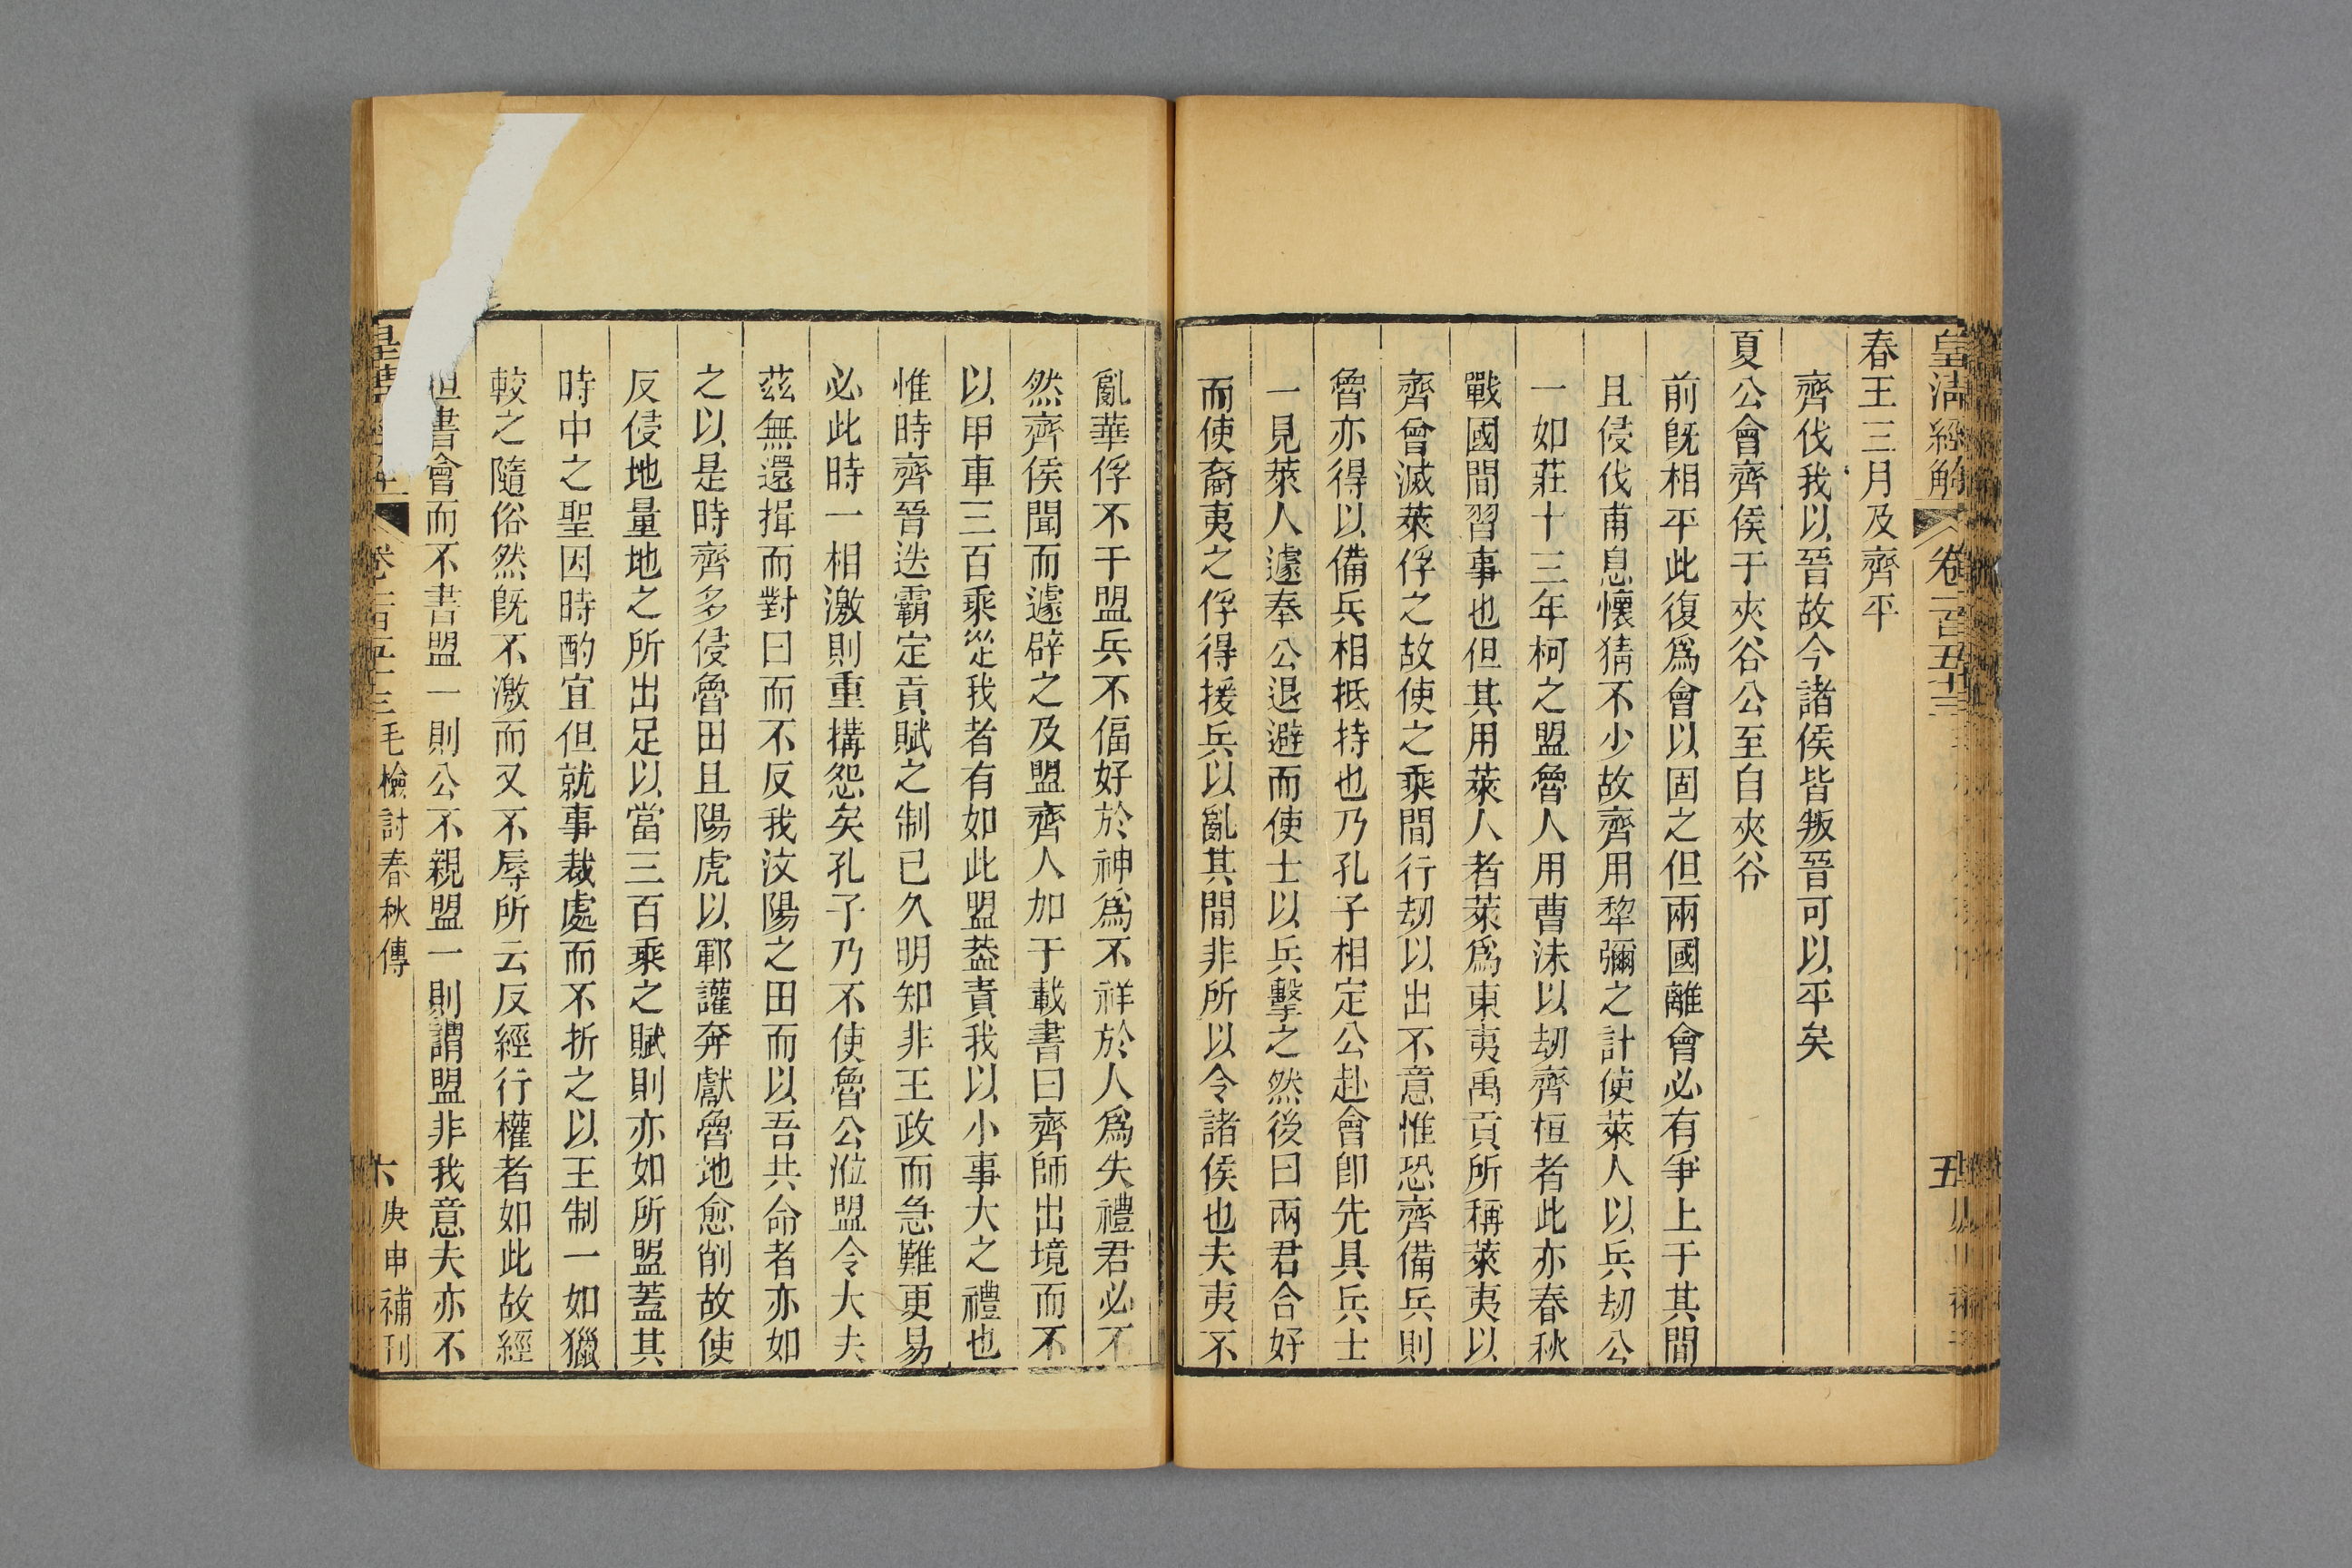 皇清經解 卷一百五十三 五
春王三月及齊平
齊伐我以晉故今諸侯皆叛晉可以平矣
夏公會齊侯于夾谷公至自夾谷
前旣相平此復爲會以固之但兩國離會必有爭上于其間
且侵伐甫息懷猜不少故齊用犂彌之計使萊人以兵刧公
一如莊十三年柯之盟魯人用曹沬以刧齊桓者此亦春秋
戰國間習事也但其用萊人者萊爲東夷禹貢所稱萊夷以
齊曾滅萊俘之故使之乘間行刧以出不意惟恐齊備兵則
魯亦得以備兵相抵持也乃孔子相定公赴會卽先具兵士
一見萊人遽奉公退避而使士以兵擊之然後曰兩君合好
而使裔夷之俘得援兵以亂其間非所以令諸侯也夫夷不
亂華俘不干盟兵不偪好於神爲不祥於人爲失禮君必不
然齊侯聞而遽辟之及盟齊人加于載書曰齊師出境而不
以甲車三百乘從我者有如此盟葢責我以小事大之禮也
惟時齊晉迭霸定貢賦之制已久明知非王政而急難更易
必此時一相激則重搆怨矣孔子乃不使魯公涖盟令大夫
茲無還揖而對曰而不反我汶陽之田而以吾共命者亦如
之以是時齊多侵魯田且陽虎以鄆讙奔獻魯地愈削故使
反侵地量地之所出足以當三百乘之賦則亦如所盟蓋其
時中之聖因時酌宜但就事裁處而不折之以王制一如獵
較之隨俗然旣不激而又不辱所云反經行權者如此故經
但書會而不書盟一則公不親盟一則謂盟非我意夫亦不
皇 卷一百五十三 毛檢討春秋傳 六 庚申補刊